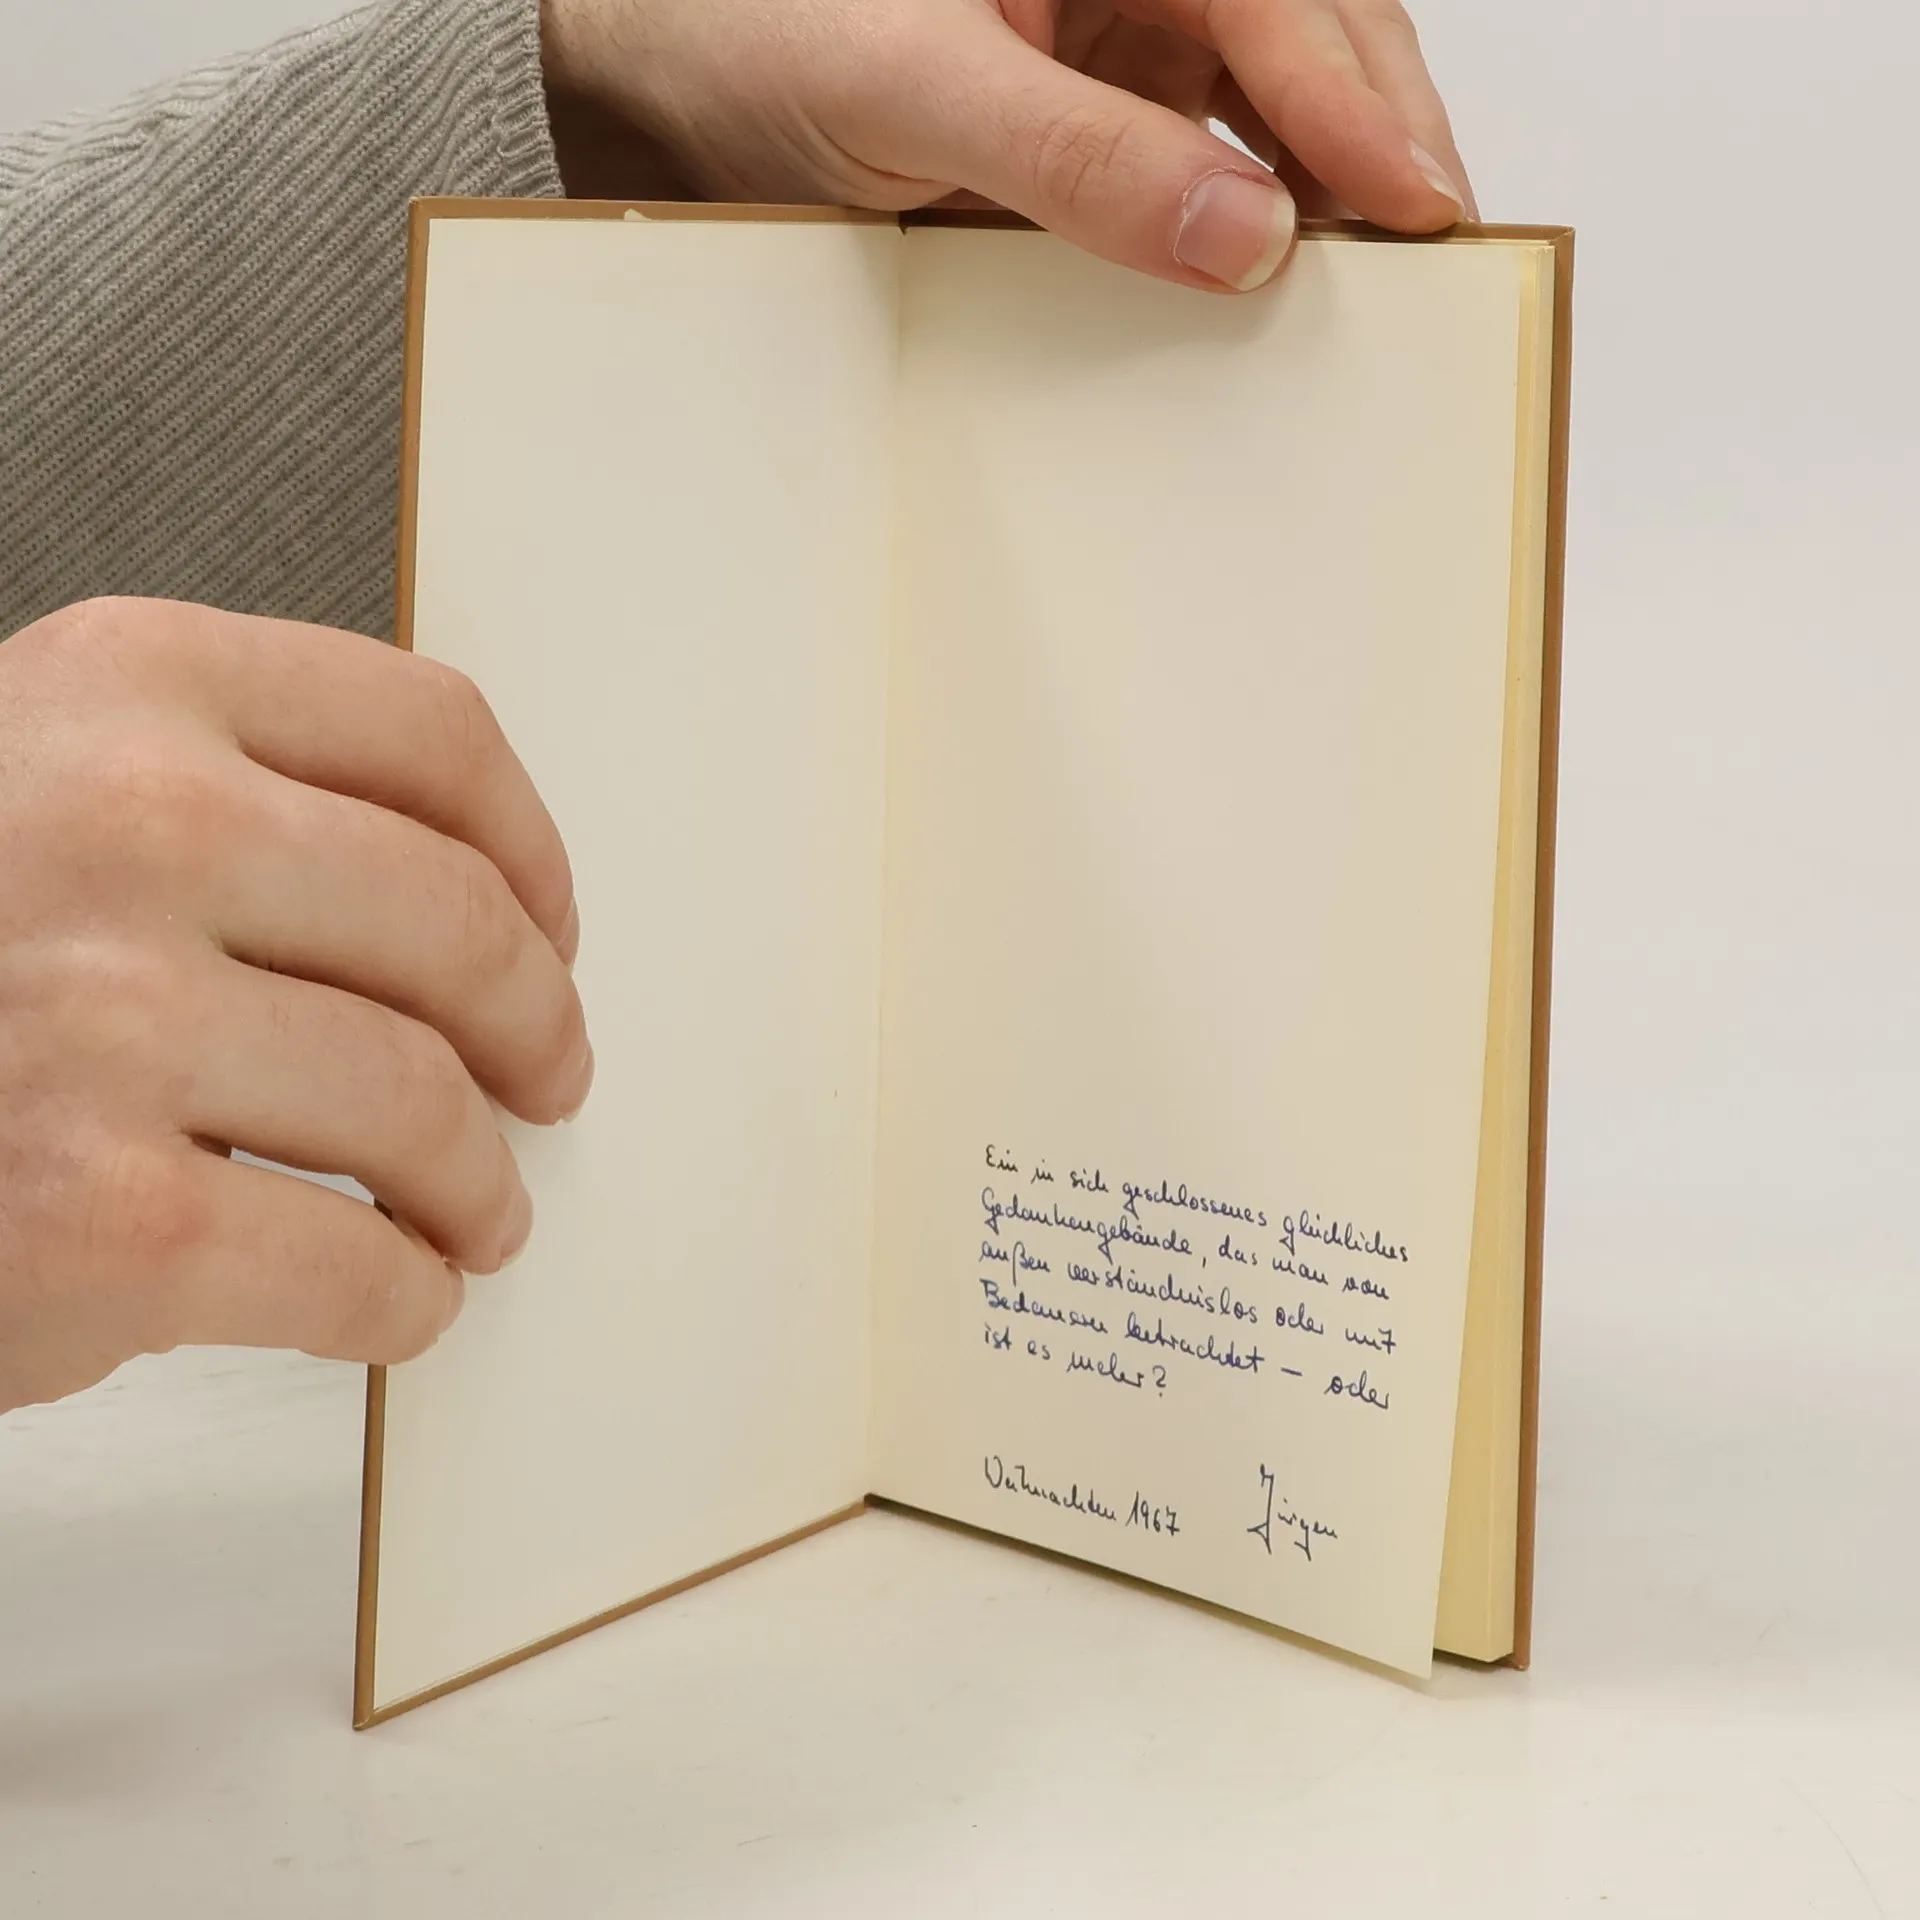 Ein in sich geschlossenes glückliches
Gedankengebäude, das man von
außen verständnislos oder mit
Bedauern betrachtet – oder
ist es mehr?
Weihnachten 1967 Jürgen